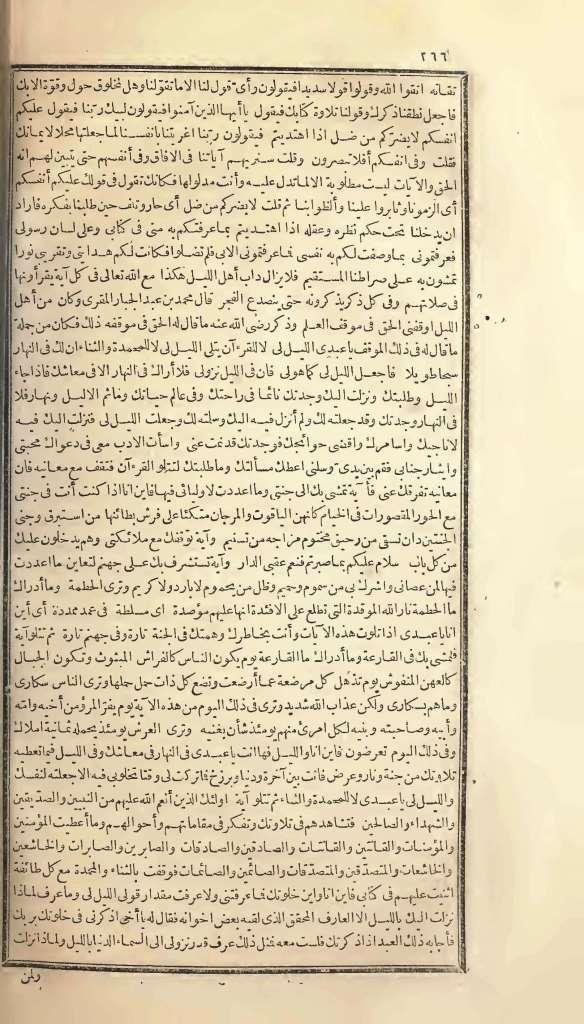 ٢٦٦
تقاته اتقوا الله وقولوا قولا سديدا فيقولون وأى قول لنا الا ما تقولنا وهل لمخلوق حول وقوة الا بك
فاجعل نطقنا ذكرك وقولنا تلاوة كتابك فيقول يا أيها الذين آمنوا فيقولون لبيك ربنا فيقول عليكم
انفسكم لا يضركم من ضل اذا اهتديتم فيقولون ربنا اغريتنا بانفسنا لما جعلتها محلا لايمانك
فقلت وفى انفسكم أفلا تبصرون وقلت سنريهم آياتنا فى الآفاق وفى أنفسهم حتى يتبين لهم انه
الحق والآيات ليست مطلوبة الا لما تدل عليه وأنت مدلولها فكانك تقول فى قولك عليكم أنفسكم
أى الزمونا وثابروا علينا وألظوا بنا ثم قلت لا يضركم من ضل أى حار وتلف حين طلبنا بفكره فاراد
ان يدخلنا تحت حكم نظره وعقله اذا اهتديتم بما عرفتكم به منى فى كتابى وعلى لسان رسولى
فعرفتمونى بما وصفت لكم به نفسى فما عرفتمونى الا بى فلم تضلوا فكانت لكم هدايتى وتقريبى نورا
تمشون به على صراطنا المستقيم فلا يزال دأب أهل الليل هكذا مع الله تعالى فى كل آية يقرأونها
فى صلاتهم وفى كل ذكر يذكرونه حتى ينصدع الفجر قال محمد بن عبد الجبار النفرى وكان من أهل
الليل اوقفنى الحق فى موقف العلم وذكر رضى الله عنه ما قال له الحق فى موقفه ذلك فكان من جملة
ما قال له فى ذلك الموقف يا عبدى الليل لى لا للقرآن يتلى الليل لى لا للمحمدة والثناء ان لك فى النهار
سبحا طويلا فاجعل الليل لى كما هو لى فان فى الليل نزولى فلا أراك فى النهار الا فى معاشك فاذا جاء
الليل وطلبتك ونزلت اليك وجدتك نائما فى راحتك وفى عالم حياتك وما ثم الا ليل ونهار فلا
فى النهار وجدتك وقد جعلته لك ولم أنزل فيه اليك وسلمته لك وجعلت الليل لى فنزلت اليك فيه
لاناجيك واسامرك واقضى حوائجك فوجدتك قد نمت عنى واسأت الادب معى فى دعواك محبتى
وايثار جنابى فقم بين يدى وسلنى أعطك مسألتك وما طلبتك لتتلو القرآن فتقف مع معانيه فان
معانيه تفرقك عنى فآية تمشى بك الى جنتى وما اعددت لاوليائى فيها فاين انا اذا كنت أنت فى جنتى
مع الحور المقصورات فى الخيام كانهن الياقوت والمرجان متكئا على فرش بطائنها من استبرق وجنى
الجنتين دان تسقى من رحيق مختوم مزاجه من تسنيم وآية توقفك مع ملائكتى وهم يدخلون عليك
من كل باب سلام عليكم بما صبرتم فنعم عقبى الدار وآية تستشرف بك على جهنم لتعاين ما اعددت
فيها لمن عصانى واشرك بى من سموم وحميم وظل من يحموم لا بارد ولا كريم وترى الحطمة وما أدراك
ما الحطمة نار الله الموقدة التى تطلع على الافئدة انها عليهم مؤصدة اى مسلطة فى عمد ممددة أى اين
انا يا عبدى اذا تلوت هذه الآيات وأنت بخاطرك وهمتك فى الجنة تارة وفى جهنم تارة ثم تتلو آية
فتمشى بك فى القارعة وما أدراك ما القارعة يوم يكون الناس كالفراش المبثوث وتكون الجبال
كالعهن المنفوش يوم تذهل كل مرضعة عما أرضعت وتضع كل ذات حمل حملها وترى الناس سكارى
وما هم بسكارى ولكن عذاب الله شديد وترى فى ذلك اليوم من هذه الآية يوم يفر المرؤ من أخيه وامه
وأبيه وصاحبته وبنيه لكل امرئ منهم يومئذ شأن يغنيه وترى العرش يومئذ يحمله ثمانية املاك
وفى ذلك اليوم تعرضون فاين انا والليل فها أنت يا عبدى فى النهار فى معاشك وفى الليل فيما تعطيه
تلاوتك من جنة ونار وعرض فانت بين آخرة ودنيا وبرزخ فما تركت لى وقتا تخلو بى فيه الا جعلته لنفسك
والليل لى يا عبدى لا للمحمدة والثناء ثم تتلو آية اولئك الذين أنعم الله عليهم من النبيين والصديقين
والشهداء والصالحين فتشاهدهم فى تلاوتك وتفكر فى مقاماتهم وأحوالهم وما أعطيت المؤمنين
والمؤمنات والقانتين والقانتات والصادقين والصادقات والصابرين والصابرات والخاشعين
والخاشعات والمتصدقين والمتصدقات والصائمين والصائمات فوقفت بالثناء والمحمدة مع كل طائفة
اثنيت عليهم فى كتابى فاين انا واين خلوتك فما عرفتنى ولا عرفت مقدار قولى الليل لى وما عرف لماذا
نزلت اليك بالليل الا العارف المحقق الذى لقيه بعض اخوانه فقال له يا أخى اذكرنى فى خلوتك بربك
فأجابه ذلك العبد اذا ذكرتك فلست معه فى خلوة فمثل ذلك عرف قدر نزولى الى السماء الدنيا بالليل ولماذا نزلت
ولمن